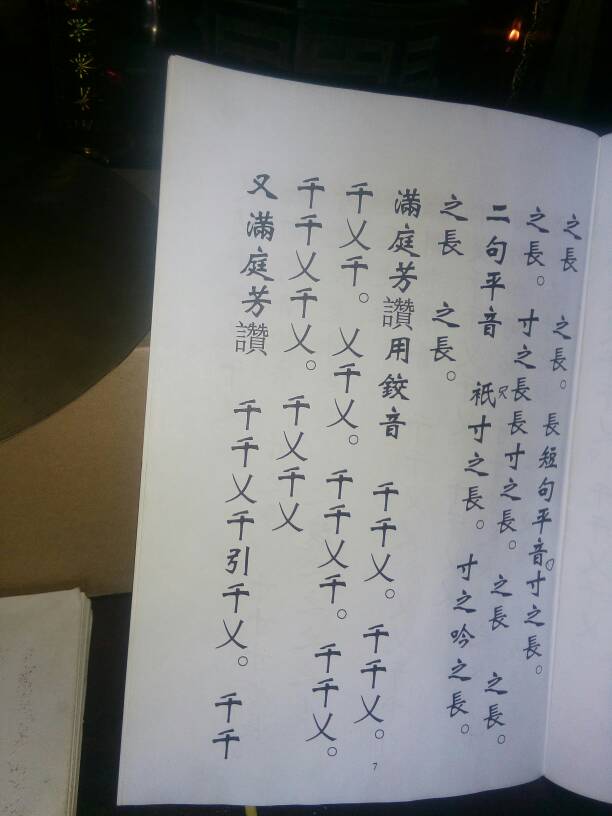 之長　之長。長短句平音。寸之長。
之長。寸之長長寸之長。之長　之長。
二句平音　祇尺寸之長。寸之吟之長。
之長　之長。
滿庭芳讚用鉸音　千千乂。千千乂。
千乂千。乂千乂。千千乂千。千千乂。
千千乂千乂。千乂千乂
又滿庭芳讚　千千乂千引千乂。千千
7